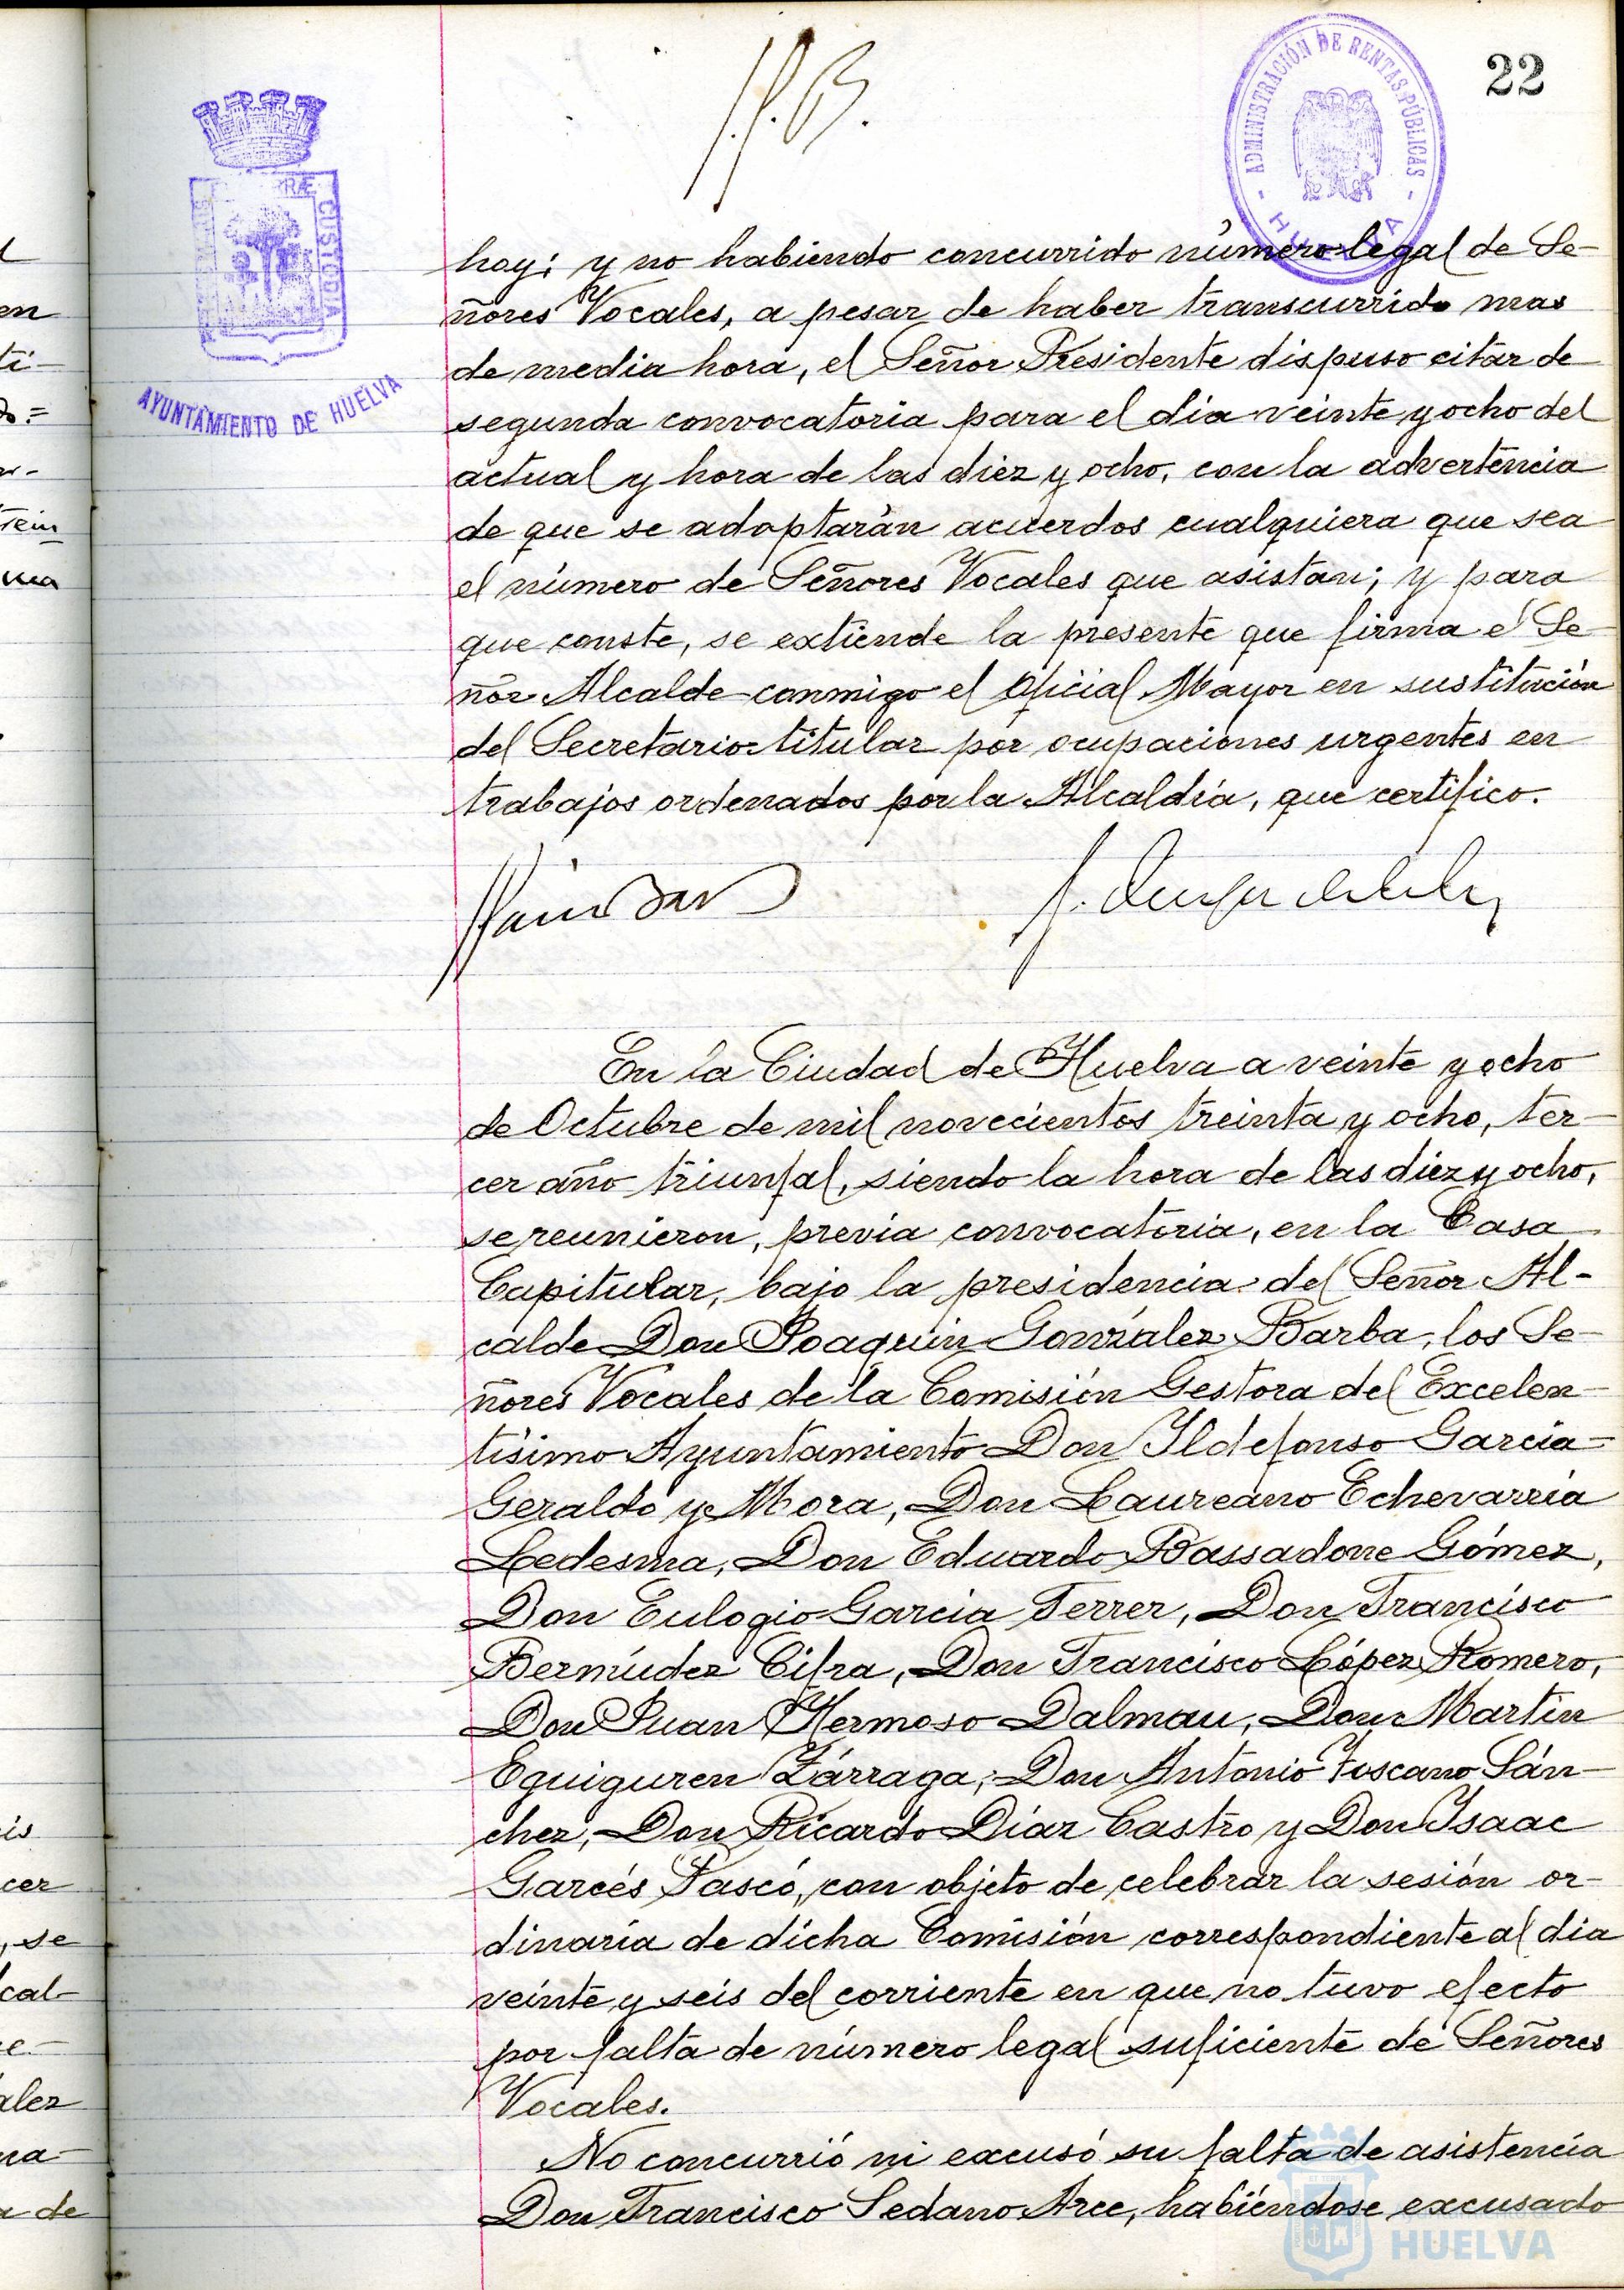 22
ADMINISTRACIÓN DE RENTAS PÚBLICAS
HUELVA
CUSTODIA
AYUNTAMIENTO DE HUELVA
hoy; y no habiendo concurrido número legal de Se-
ñores Vocales, a pesar de haber transcurrido mas
de media hora, el Señor Presidente dispuso citar de
segunda convocatoria para el dia veinte y ocho del
actual y hora de las diez y ocho, con la advertencia
de que se adoptarán acuerdos cualquiera que sea
el número de Señores Vocales que asistan; y para
que conste, se extiende la presente que firma el Se-
ñor Alcalde conmigo el Oficial Mayor en sustitución
del Secretario titular por ocupaciones urgentes en
trabajos ordenados por la Alcaldía, que certifico.
En la Ciudad de Huelva a veinte y ocho
de Octubre de mil novecientos treinta y ocho, ter-
cer año triunfal, siendo la hora de las diez y ocho,
se reunieron, previa convocatoria, en la Casa
Capitular, bajo la presidencia del Señor Al-
calde Don Joaquin González Barba, los Se-
ñores Vocales de la Comisión Gestora del Excelen-
tísimo Ayuntamiento Don Ildefonso Garcia-
Geraldo y Mora, Don Laureano Echevarria
Ledesma, Don Eduardo Bassadone Gómez,
Don Eulogio Garcia Ferrer, Don Francisco
Bermúdez Cifra, Don Francisco López Romero,
Don Juan Hermoso Dalmau, Don Martin
Eguiguren Zárraga, Don Antonio Toscano Sán-
chez, Don Ricardo Díaz Castro y Don Isaac
Garcés Pascó, con objeto de celebrar la sesión or-
dinaria de dicha Comisión correspondiente al dia
veinte y seis del corriente en que no tuvo efecto
por falta de número legal suficiente de Señores
Vocales.
No concurrió ni excusó su falta de asistencia
Don Francisco Sedano Arce, habiéndose excusado
HUELVA